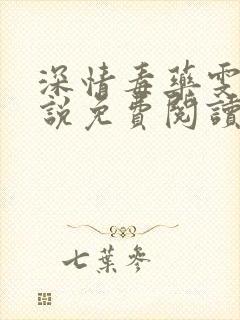 深情毒藥雯
說免費閱讀
七葉參